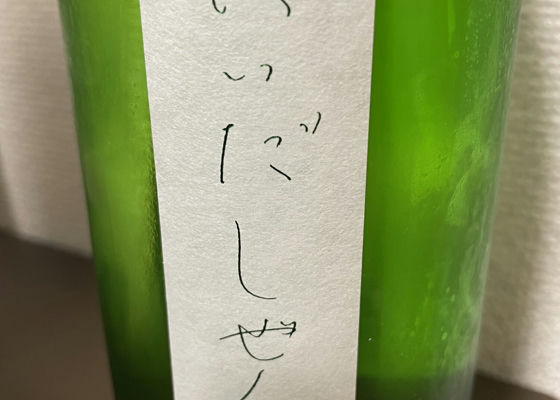 いだしぜ